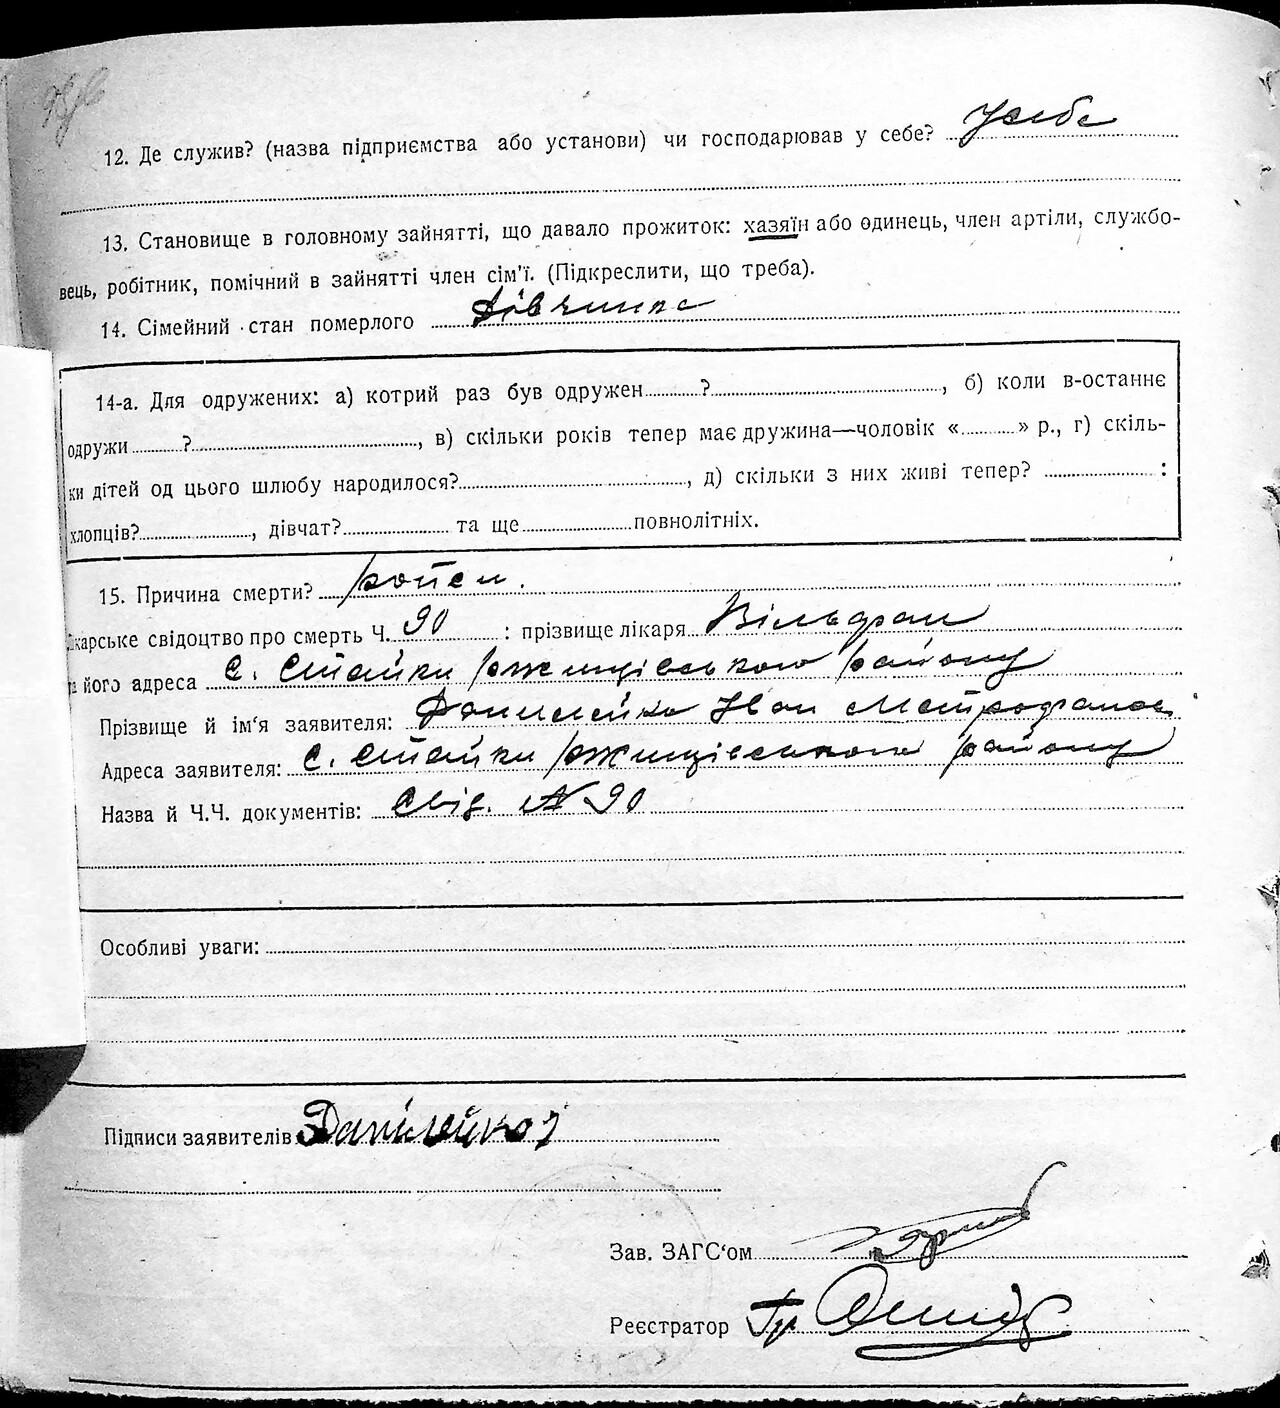 12. Де служив? (назва підприємства або установи) чи господарював у себе? У себе
13. Становище в головному зайнятті, що давало прожиток: хазяїн або одинець, член артіли, службо-
вець, робітник, помічний в зайнятті член сім'ї. (Підкреслити, що треба).
14. Сімейний стан померлого дівчина
14-а. Для одружених: а) котрий раз був одружен ? , б) коли в-останнє
одружи ? , в) скільки років тепер має дружина—чоловік « » р., г) скіль-
ки дітей од цього шлюбу народилося? , д) скільки з них живі тепер? :
хлопців? , дівчат? та ще повнолітніх.
15. Причина смерти?
карське свідоцтво про смерть Ч. 90 : прізвище лікаря Вільфран
та його адреса с. Стайки Ржищівського району
Прізвище й ім'я заявителя: Данилейко Іван Митрофанов
Адреса заявителя: с. Стайки Ржищівського району
Назва й Ч.Ч. документів: Свід. № 90
Особливі уваги:
Підписи заявителів Данілейко
Зав. ЗАГС'ом
Реєстратор